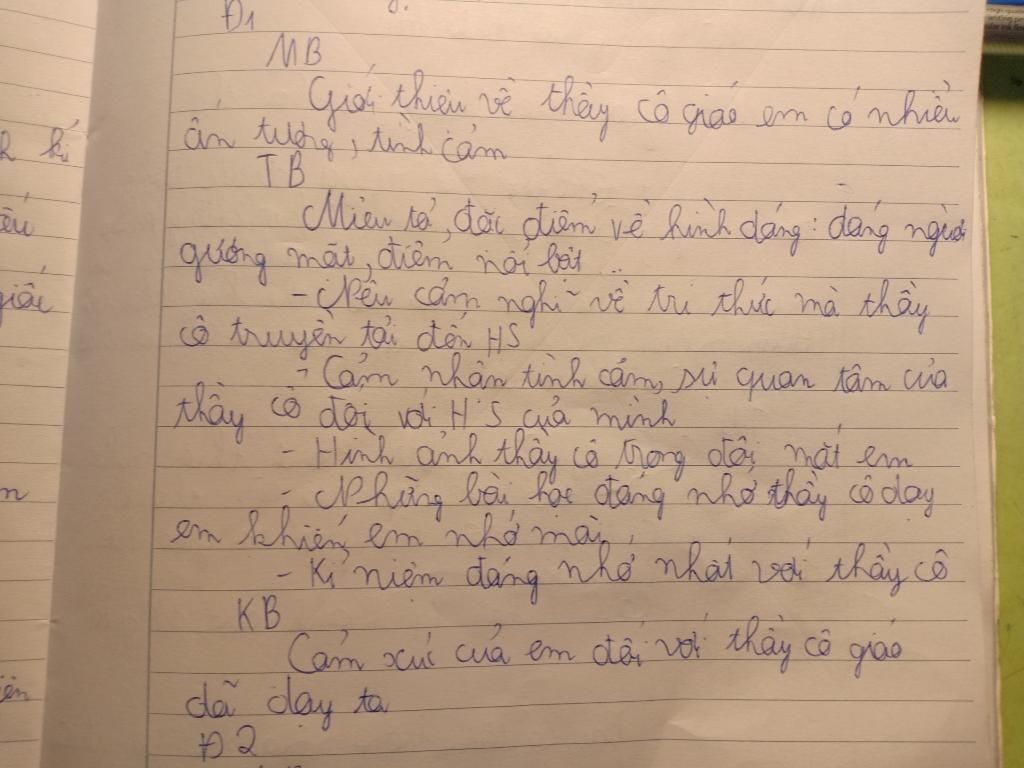 Đ1
MB
Giới thiệu về thầy cô giáo em có nhiều
ấn tượng, tình cảm
TB
Miêu tả, đặc điểm về hình dáng: dáng người
gương mặt, điểm nổi bật ..
- Nêu cảm nghĩ về tri thức mà thầy
cô truyền tải đến HS
- Cảm nhận tình cảm, sự quan tâm của
thầy cô đối với HS của mình
- Hình ảnh thầy cô trong đôi mắt em
- Những bài học đáng nhớ thầy cô dạy
em khiến em nhớ mãi
- Kỉ niệm đáng nhớ nhất với thầy cô
KB
Cảm xúc của em đối với thầy cô giáo
dã dạy ta
Đ2